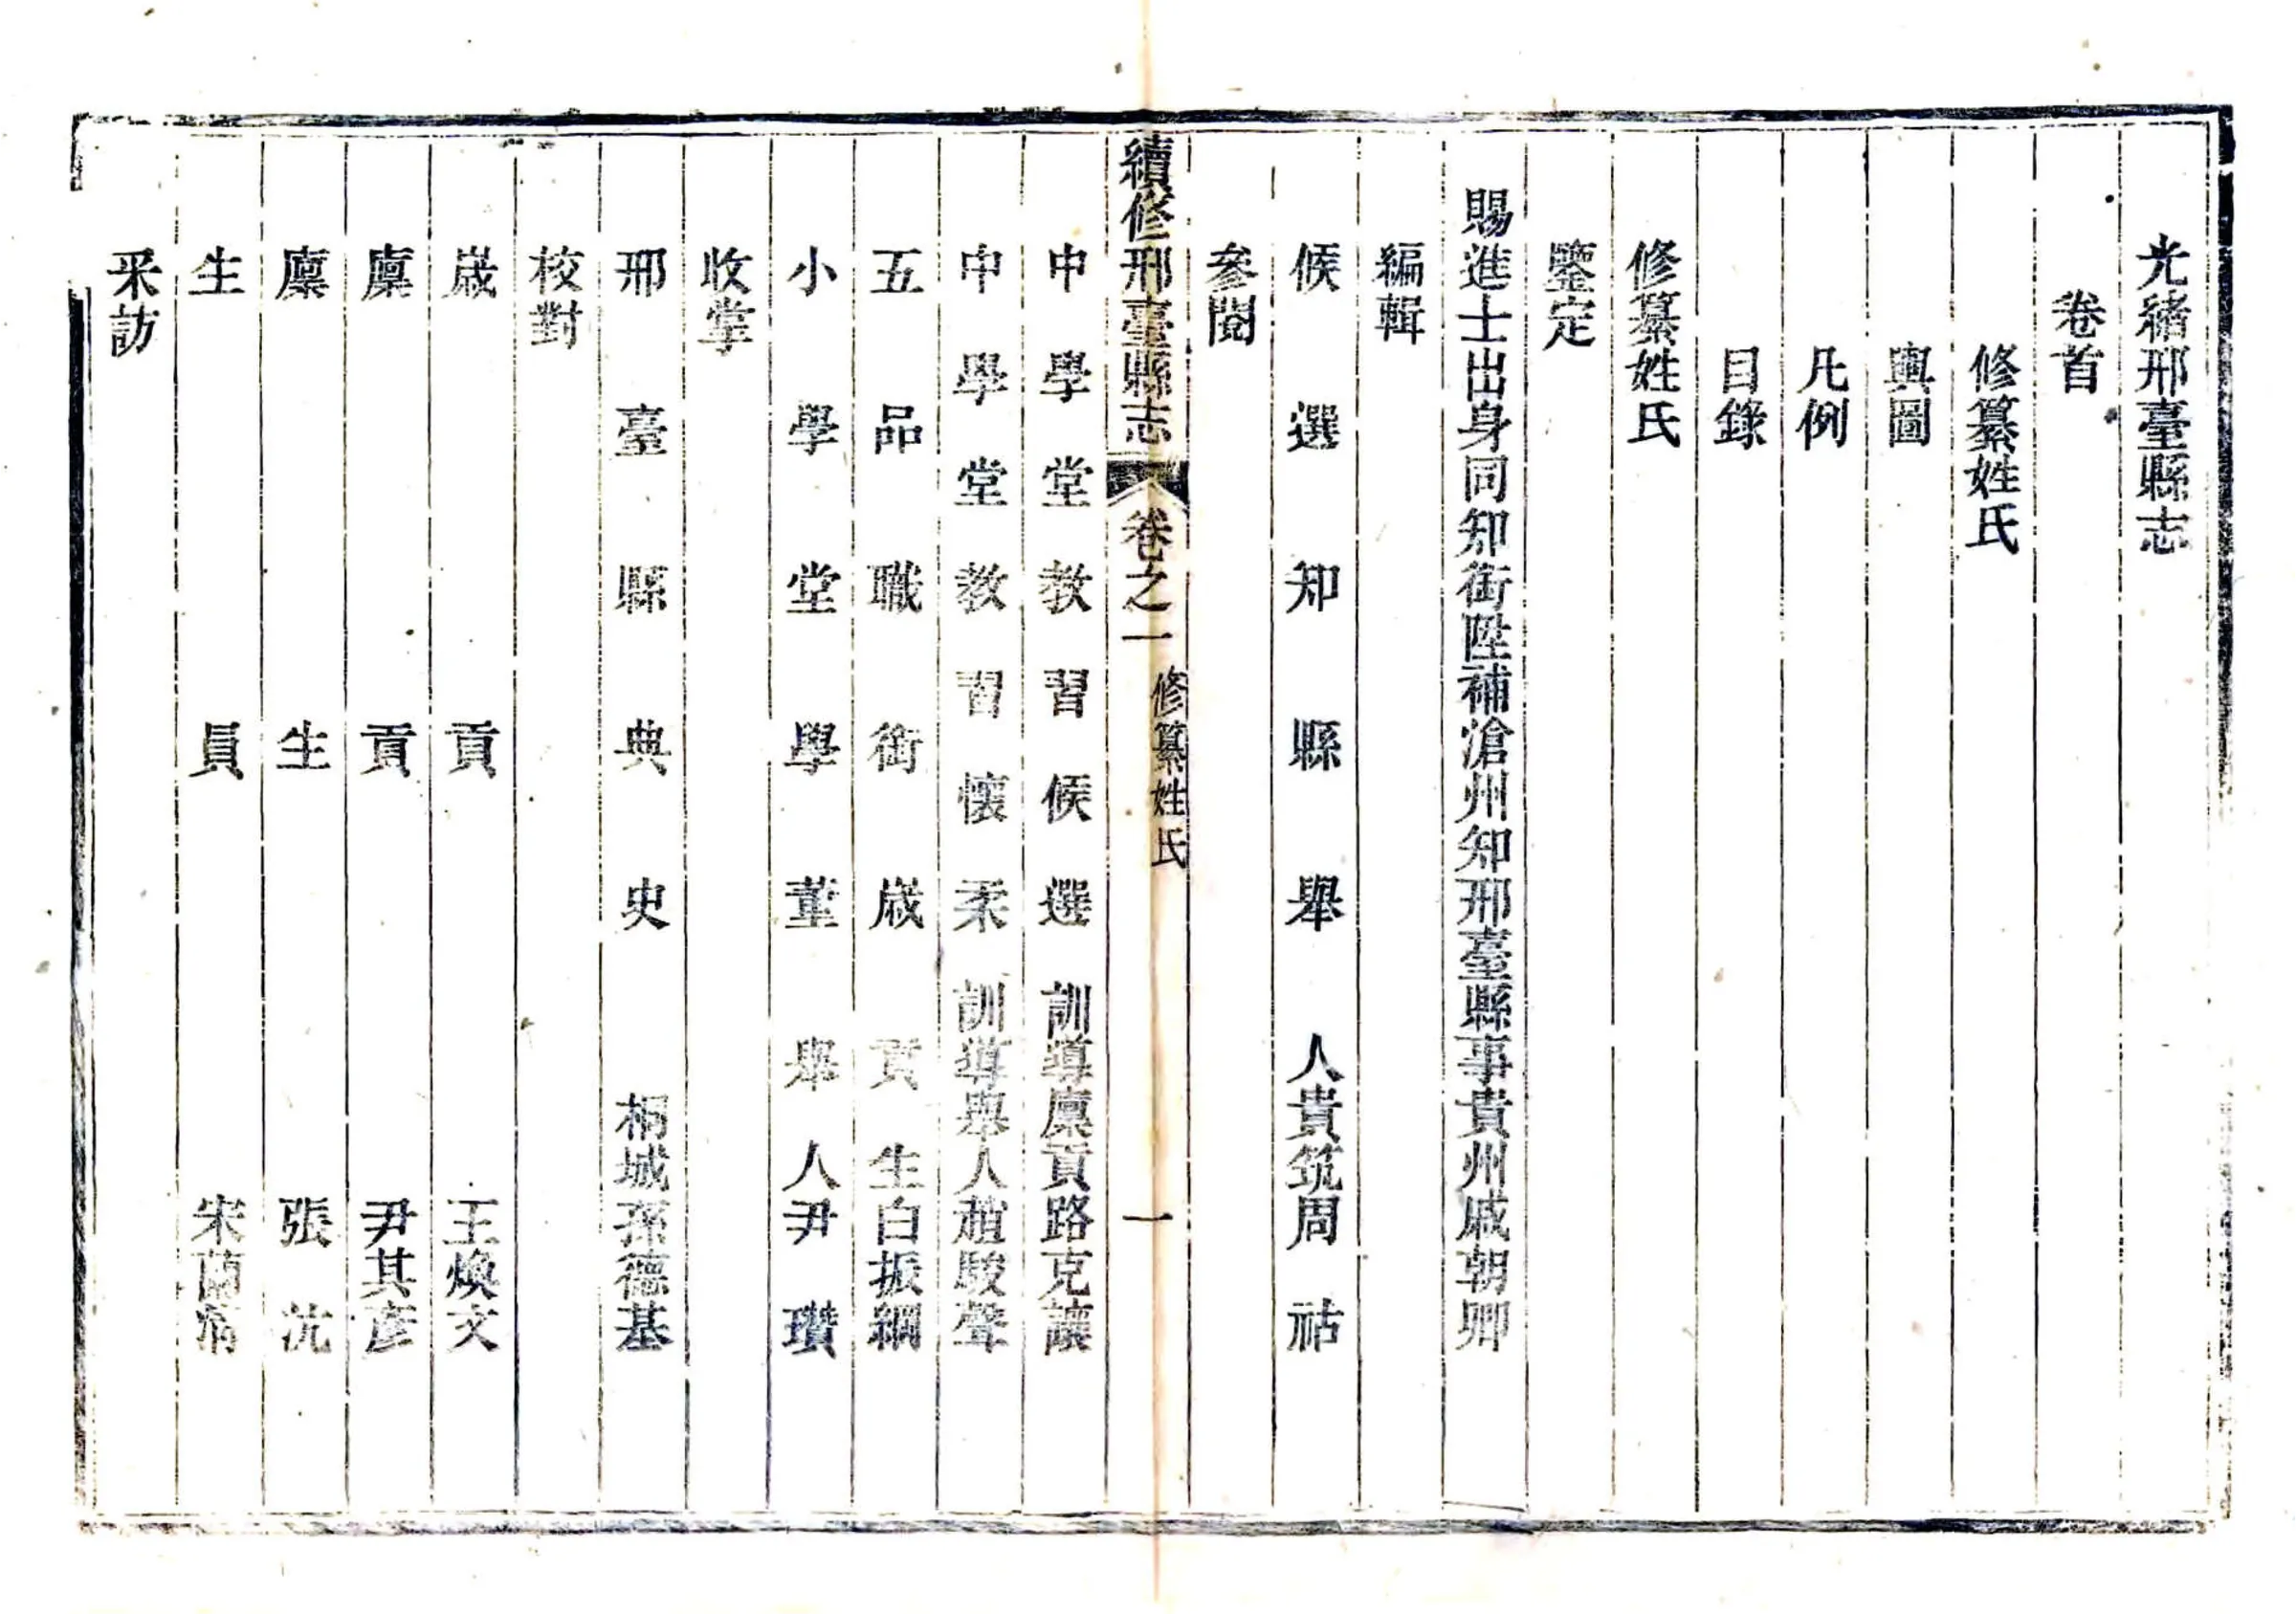 光緒邢臺縣志
卷首
修纂姓氏
輿圖
凡例
目錄
修纂姓氏
鑒定
賜進士出身同知銜陞補滄州知邢臺縣事貴州戚朝卿
編輯
候選知縣舉人貴筑周祜
參閱
續修邢臺縣志 卷之一 修纂姓氏 一
中學堂教習候選訓導廩貢路克讓
中學堂教習懷柔訓導舉人趙駿聲
五品職銜歲貢生白振綱
小學堂學董舉人尹瓚
收掌
邢臺縣典史桐城孫德基
校對
歲貢王煥文
廩貢尹其彥
廩生張沈
生員宋蘭
采訪